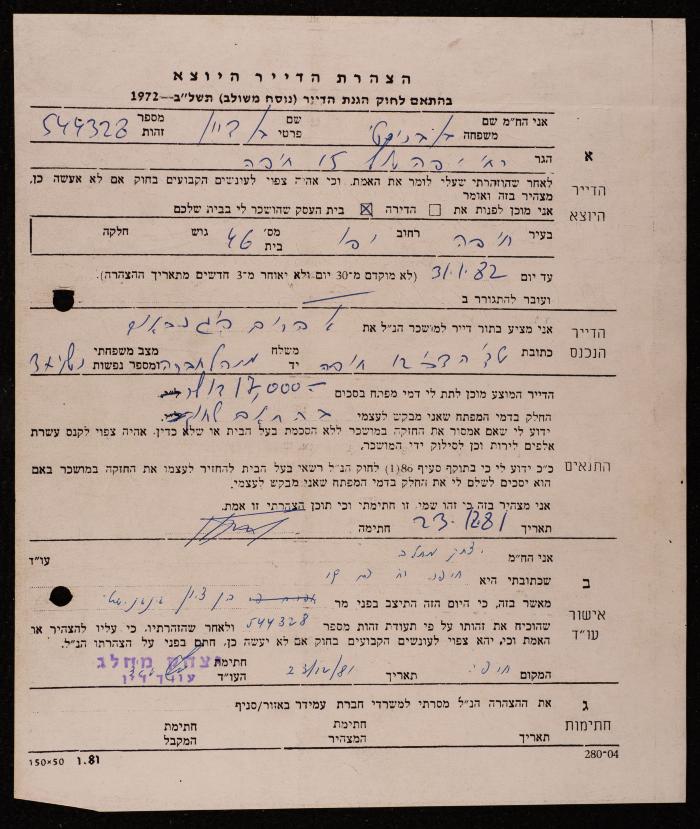 הצהרת הדייר היוצא
בהתאם לחוק הגנת הדייר (נוסח משולב) תשל"ב—1972
אני הח"מ שם משפחה שם פרטי בן ציון מספר זהות 544328
א
הגר רח' יפה נוף חיפה
הדייר היוצא
לאחר שהוזהרתי שעלי לומר את האמת, וכי אהיה צפוי לעונשים הקבועים בחוק אם לא אעשה כן,
מצהיר בזה ואומר
אני מוכן לפנות את ☐ הדירה ☒ בית העסק שהושכר לי בבית שלכם
בעיר חיפה רחוב יפו מס' בית 46 גוש חלקה
עד יום 31.1.82 (לא מוקדם מ־30 יום ולא יאוחר מ־3 חדשים מתאריך ההצהרה).
ועובר להתגורר ב
הדייר הנכנס
אני מציע בתור דייר למושכר הנ"ל את אברהם
כתובת חיפה משלח יד מנהל חברה מצב משפחתי ומספר נפשות נשוי
הדייר המוצע מוכן לתת לי דמי מפתח בסכום 17,000.- דולר
החלק בדמי המפתח שאני מבקש לעצמי בהתאם לחוק
ידוע לי שאם אמסור את החזקה במושכר ללא הסכמת בעל הבית או שלא כדין, אהיה צפוי לקנס עשרת
אלפים לירות וכן לסילוק ידי המושכר.
התנאים
כ"כ ידוע לי כי בתוקף סעיף 86(1) לחוק הנ"ל רשאי בעל הבית להחזיר לעצמו את החזקה במושכר באם
הוא יסכים לשלם לי את החלק בדמי המפתח שאני מבקש לעצמי.
אני מצהיר בזה כי זהו שמי, זו חתימתי וכי תוכן הצהרתי זו אמת.
תאריך 23.12.81 חתימה
אני הח"מ יצחק מחלב עו"ד
שכתובתי היא חיפה
ב
אישור עו"ד
מאשר בזה, כי היום הזה התיצב בפני מר בן ציון
שהוכיח את זהותו על פי תעודת זהות מספר 544328 ולאחר שהזהרתיו, כי עליו להצהיר או
האמת וכי, יהא צפוי לעונשים הקבועים בחוק אם לא יעשה כן, חתם בפני על הצהרתו הנ"ל.
יצחק מחלב
עורך דין
המקום חיפה תאריך 23/12/81 חתימת העו"ד
ג
חתימות
את ההצהרה הנ"ל מסרתי למשרדי חברת עמידר באזור/סניף
תאריך חתימת המצהיר חתימת המקבל
150×50 1.81 280-04